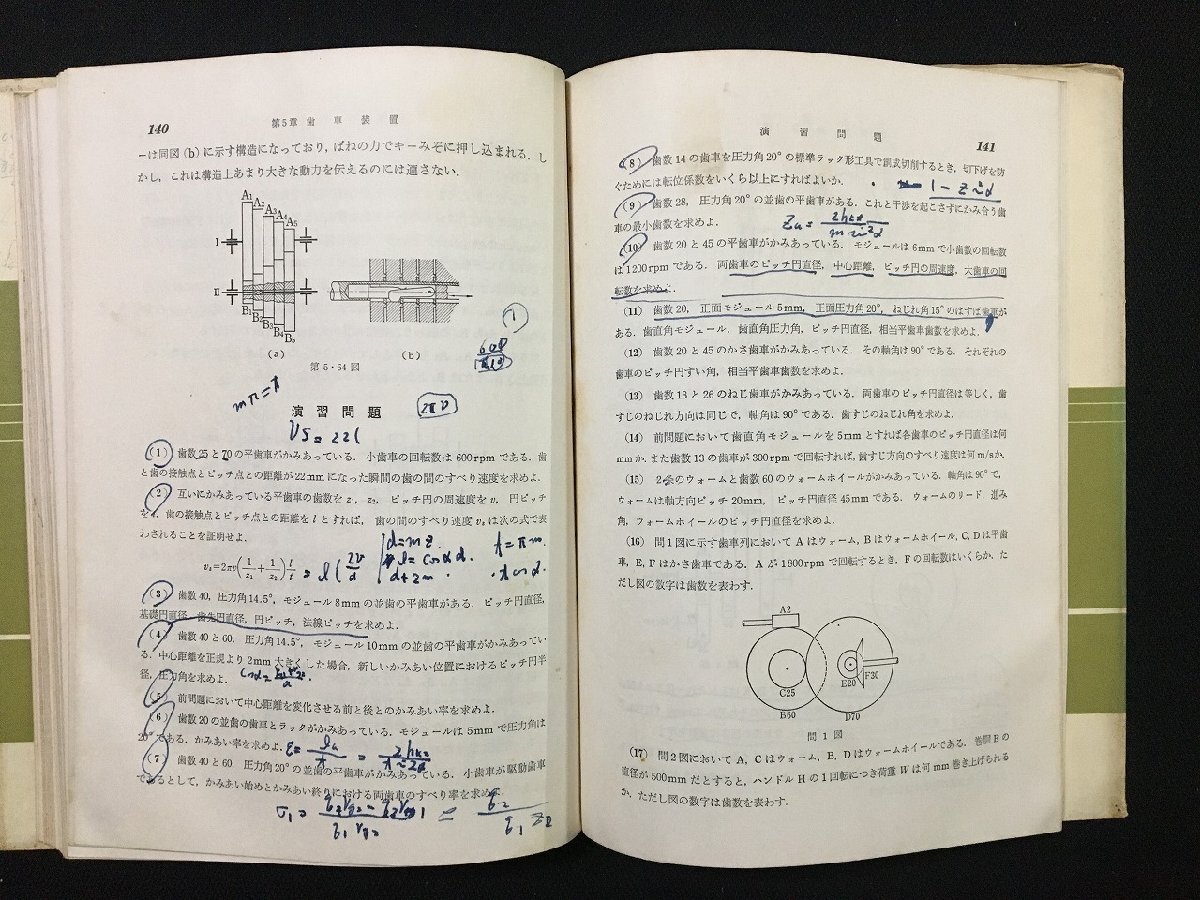 140
第5章 歯 車 装 置
ーは同図 (b) に示す構造になっており，ばねの力でキーみぞに押し込まれる．し
かし，これは構造上あまり大きな動力を伝えるのには適さない．
A₁
A₂
A₃
A₄
A₅
I
II
B₁
B₂
B₃
B₄
B₅
(a)
(b)
第5・64図
1
mπ=t
演 習 問 題
(1) 歯数25と70の平歯車がかみあっている．小歯車の回転数は600rpmである．歯
と歯の接触点とピッチ点との距離が22mmになった瞬間の歯の間のすべり速度を求めよ．
(2) 互いにかみあっている平歯車の歯数を z₁, z₂, ピッチ円の周速度を v, 円ピッチ
を t, 歯の接触点とピッチ点との距離を l とすれば，歯の間のすべり速度 vₛ は次の式で表
わされることを証明せよ．
d=mz
t=πm
vₛ=2πv(1/z₁+1/z₂)l/t
(3) 歯数40, 圧力角14.5°, モジュール8mmの並歯の平歯車がある．ピッチ円直径，
基礎円直径，歯先円直径，円ピッチ，法線ピッチを求めよ．
(4) 歯数40と60, 圧力角14.5°, モジュール10mmの並歯の平歯車がかみあってい
る．中心距離を正規より2mm大きくした場合，新しいかみあい位置におけるピッチ円半
径，圧力角を求めよ．
(5) 前問題において中心距離を変化させる前と後とのかみあい率を求めよ．
(6) 歯数20の並歯の歯車とラックがかみあっている．モジュールは5mmで圧力角は
20°である．かみあい率を求めよ．
(7) 歯数40と60 圧力角20°の並歯の平歯車がかみあっている．小歯車が駆動歯車
であるとして，かみあい始めとかみあい終りにおける両歯車のすべり率を求めよ．
演 習 問 題
141
(8) 歯数14の歯車を圧力角20°の標準ラック形工具で創成切削するとき，切下げを防
ぐためには転位係数をいくら以上にすればよいか．
(9) 歯数28, 圧力角20°の並歯の平歯車がある．これと干渉を起こさずにかみ合う歯
車の最小歯数を求めよ．
(10) 歯数20と45の平歯車がかみあっている．モジュールは6mmで小歯数の回転数
は1200rpmである．両歯車のピッチ円直径，中心距離，ピッチ円の周速度，大歯車の回
転数を求めよ．
(11) 歯数20, 正面モジュール5mm, 正面圧力角20°, ねじれ角15°のはすば歯車が
ある．歯直角モジュール，歯直角圧力角，ピッチ円直径，相当平歯車歯数を求めよ．
(12) 歯数20と45のかさ歯車がかみあっている．その軸角は90°である．それぞれの
歯車のピッチ円すい角，相当平歯車歯数を求めよ．
(13) 歯数13と26のねじ歯車がかみあっている．両歯車のピッチ円直径は等しく，歯
すじのねじれ方向は同じで，軸角は90°である．歯すじのねじれ角を求めよ．
(14) 前問題において歯直角モジュールを5mmとすれば各歯車のピッチ円直径は何
mmか．また歯数13の歯車が300rpmで回転すれば，歯すじ方向のすべり速度は何m/sか．
(15) 2条のウォームと歯数60のウォームホイールがかみあっている．軸角は90°で，
ウォームは軸方向ピッチ20mm, ピッチ円直径45mmである．ウォームのリード 進み
角，フォームホイールのピッチ円直径を求めよ．
(16) 問1図に示す歯車列において Aはウォーム, Bはウォームホイール, C, Dは平歯
車, E, Fはかさ歯車である．Aが1900rpmで回転するとき，Fの回転数はいくらか．た
だし図の数字は歯数を表わす．
A2
C25
B50
E20
F30
D70
問1図
(17) 問2図において A, Cはウォーム, B, Dはウォームホイールである．巻胴Eの
直径が500mmだとすると，ハンドルHの1回転につき荷重Wは何mm巻き上げられる
か．ただし図の数字は歯数を表わす．